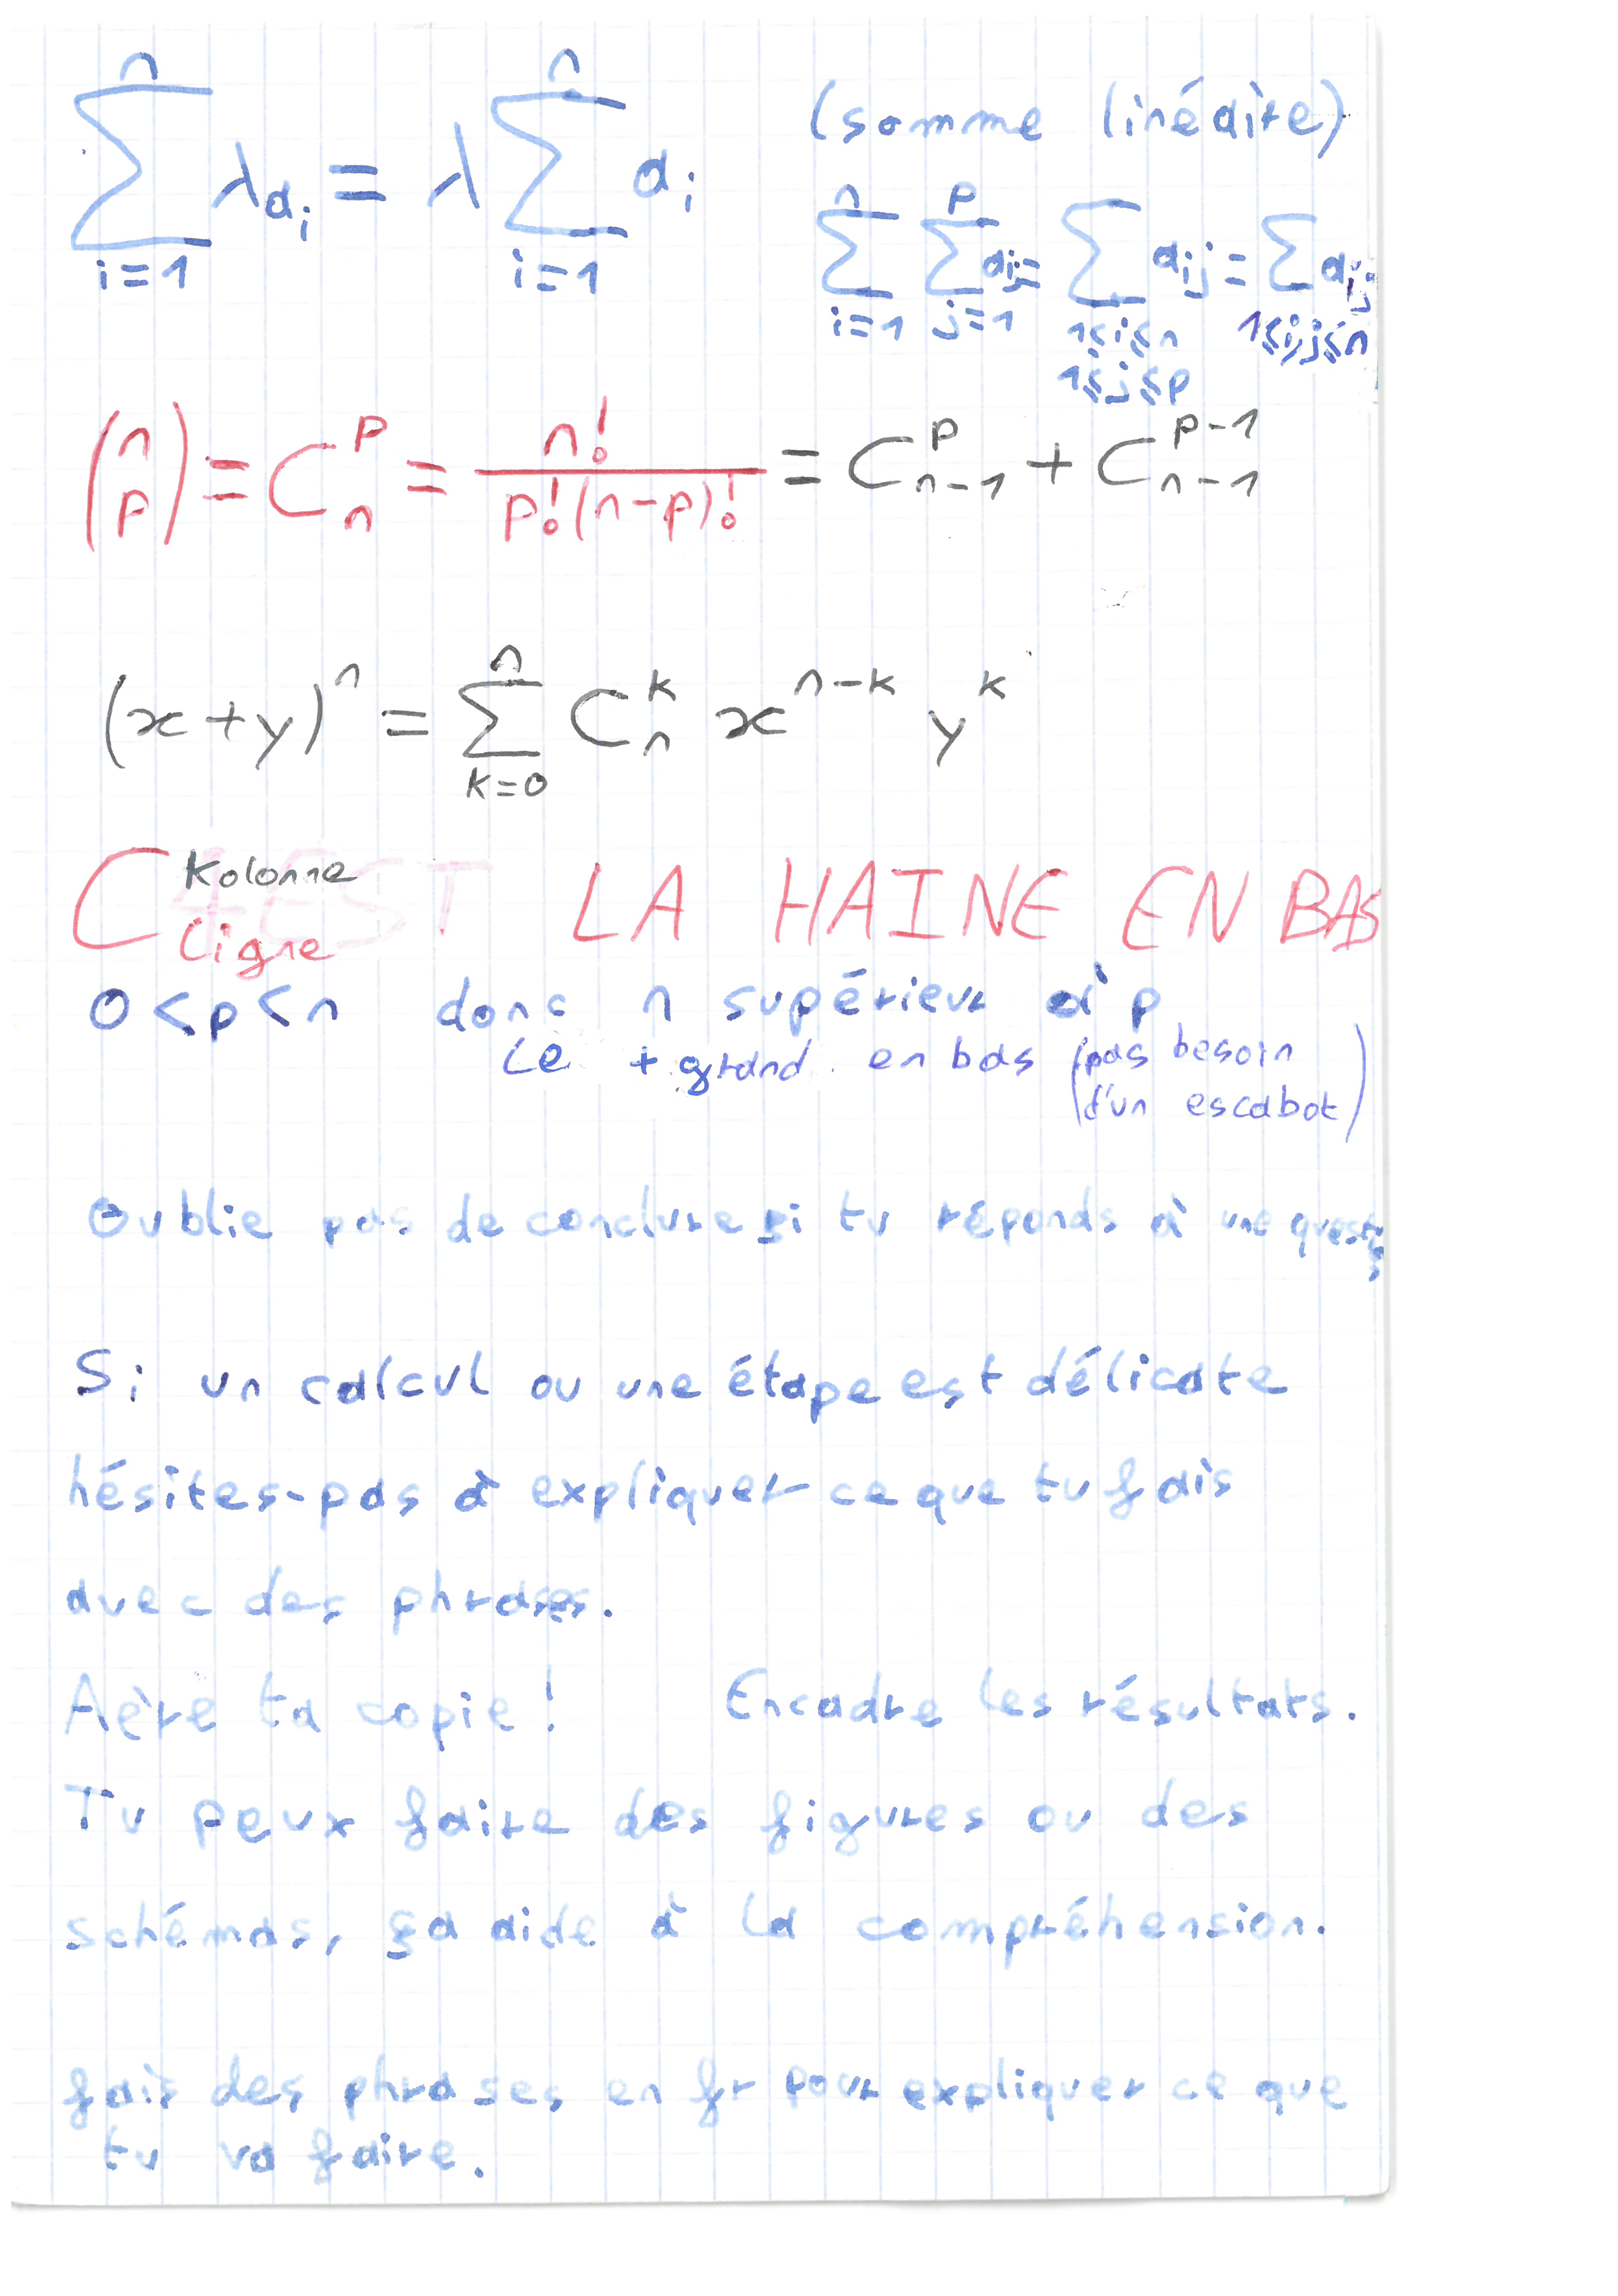 n n
∑ λai = λ ∑ ai (somme (inédite)
i=1 i=1
n p
∑ ∑ aij = ∑ aij = ∑ aij
i=1 j=1 1≤i≤n 1≤i,j≤n
1≤j≤p
(n p) = C_n^p = n! / p!(n-p)! = C_{n-1}^p + C_{n-1}^{p-1}
(x+y)^n = ∑_{k=0}^n C_n^k x^{n-k} y^k
C Kolonne LA HAINE EN BAS
Ligne
0<p<n donc n supérieur à p
Le + grand en bas (pas besoin
d'un escabot)
Oublie pas de conclure si tu réponds à une
Si un calcul ou une étape est délicate
hésites-pas à expliquer ce que tu fais
avec des phrases.
Aère ta copie ! Encadre les résultats.
Tu peux faire des figures ou des
schémas, ça aide à la compréhension.
fais des phrases en fr pour expliquer ce que
tu va faire.